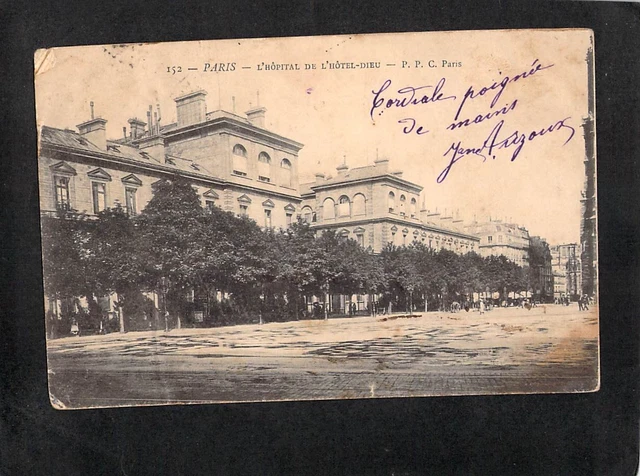 152 — PARIS — L'HÔPITAL DE L'HÔTEL-DIEU — P. P. C. Paris
Cordiale poignée
de mains